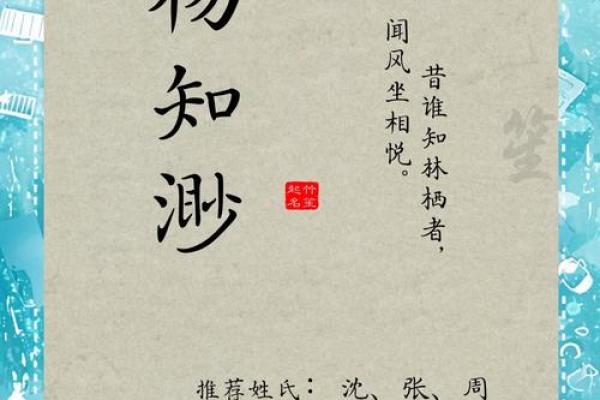 杨知渺
昔谁知林栖者,
闻风坐相悦。
竹笙
起名
笙
推荐姓氏：沈、张、周